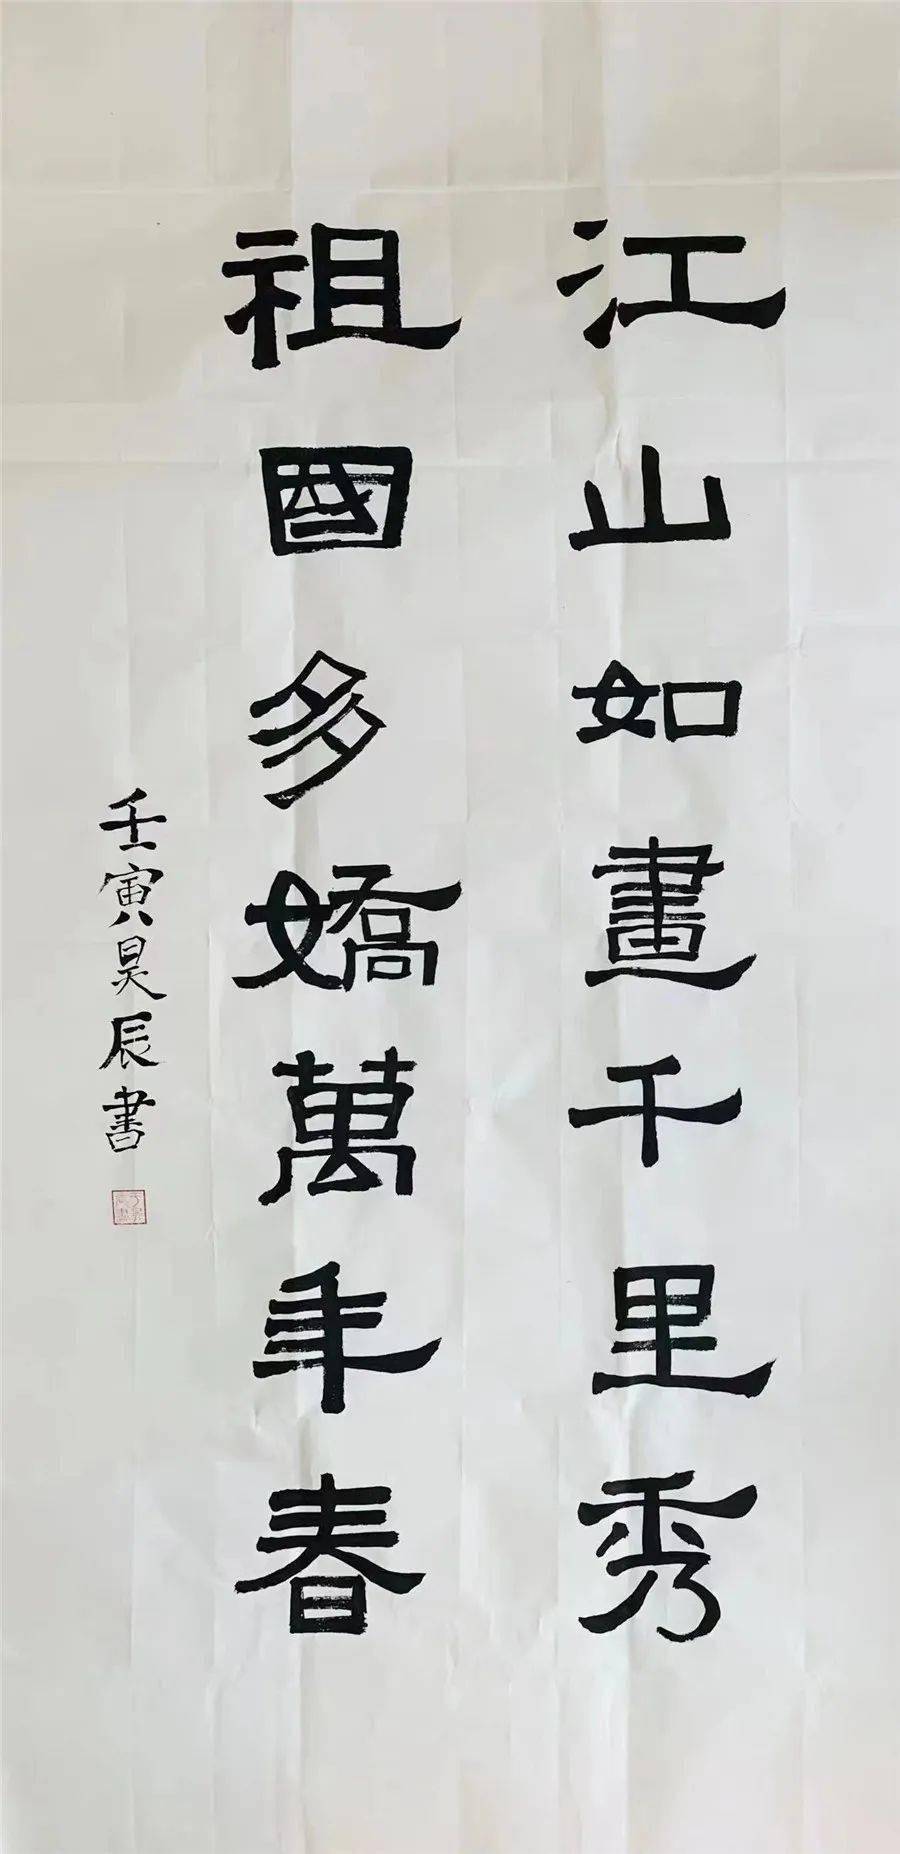 江山如畫千里秀
祖國多嬌萬年春
壬寅昊辰書